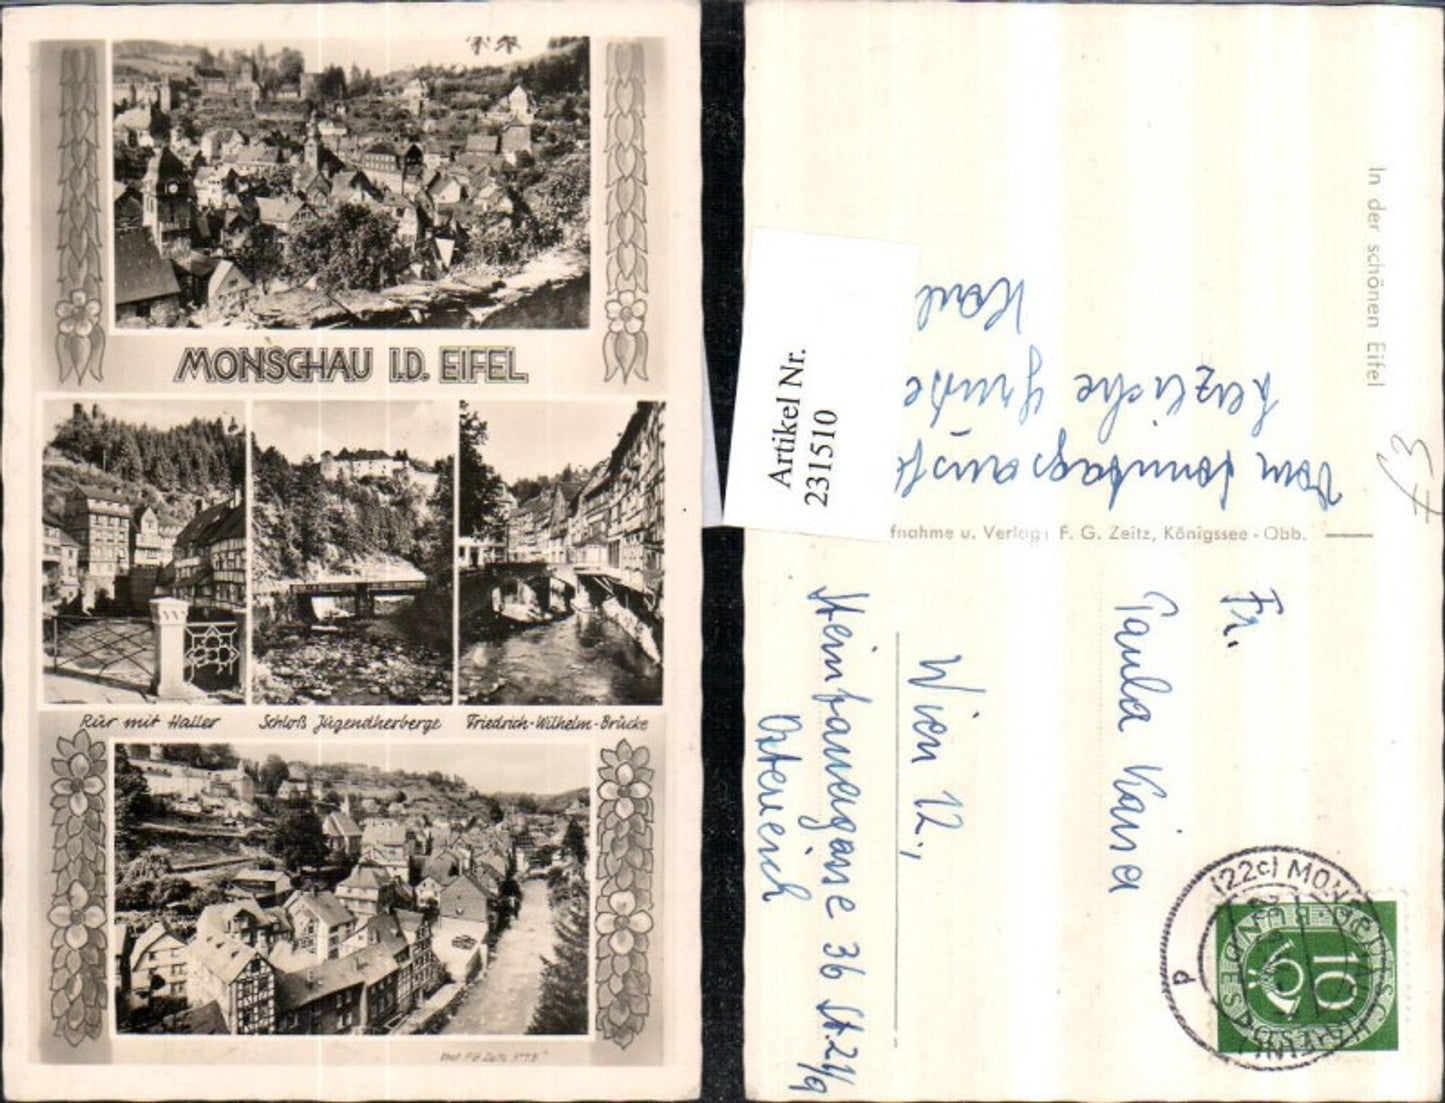 MONSCHAU I.D. EIFEL
Rur mit Haller
Schloß Jugendherberge
Friedrich-Wilhelm-Brücke
Artikel Nr.
231510
In der schönen Eifel
Vom Sonntagsausfl
herzliche Grüße
Karl
fnahme u. Verlag: F. G. Zeitz, Königssee - Obb.
Fr.
Paula Kaina
Wien 12.,
36 St. 24/9
Österreich
(22c) MONSCHAU
DEUTSCHE BUNDESPOST
10